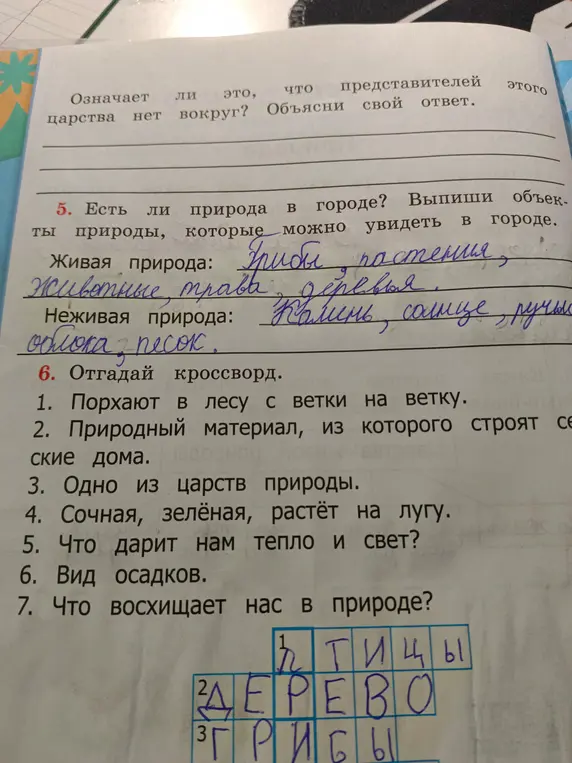 Означает ли это, что представителей этого
царства нет вокруг? Объясни свой ответ.
5. Есть ли природа в городе? Выпиши объек-
ты природы, которые можно увидеть в городе.
Живая природа: Грибы, растения,
Животные, трава, деревья.
Неживая природа: Камень, солнце, ручьи
облока, песок.
6. Отгадай кроссворд.
1. Порхают в лесу с ветки на ветку.
2. Природный материал, из которого строят се
ские дома.
3. Одно из царств природы.
4. Сочная, зелёная, растёт на лугу.
5. Что дарит нам тепло и свет?
6. Вид осадков.
7. Что восхищает нас в природе?
1 П Т И Ц Ы
2 Д Е Р Е В О
3 Г Р И Б Ы